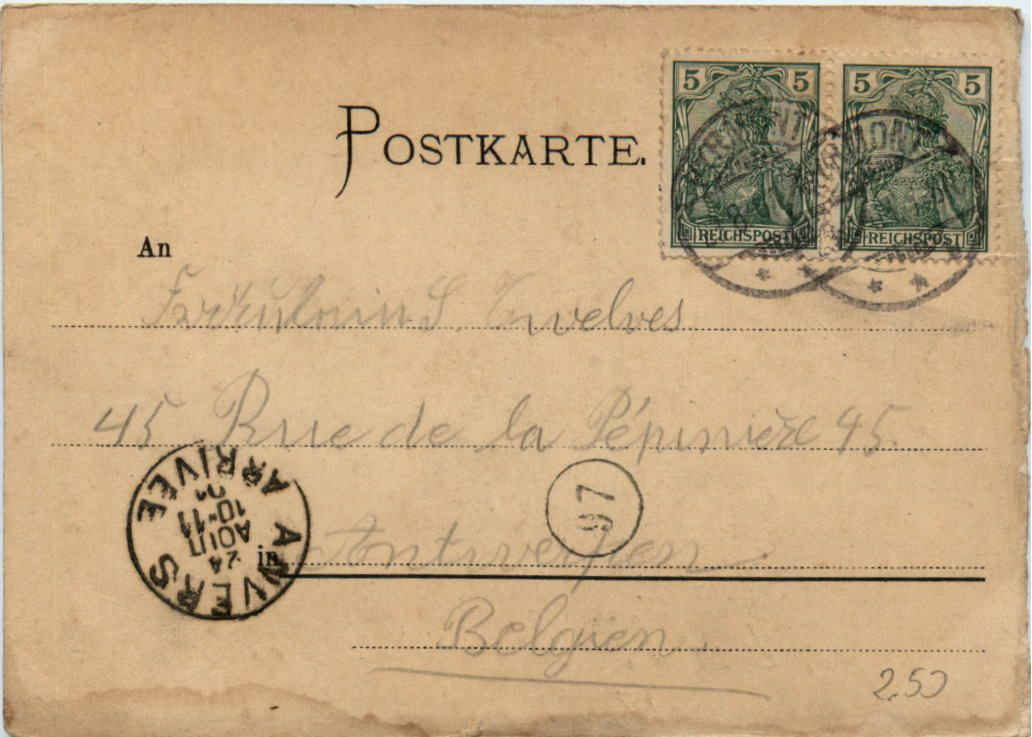 5 5 5 5
POSTKARTE.
REICHSPOST REICHSPOST
An
Fräulein S.
45 Rue de la Pépinière 45.
97
in Antwerpen.
Belgien.
ANVERS
24
AOUT
10-11
01
ARRIVÉE
2,50